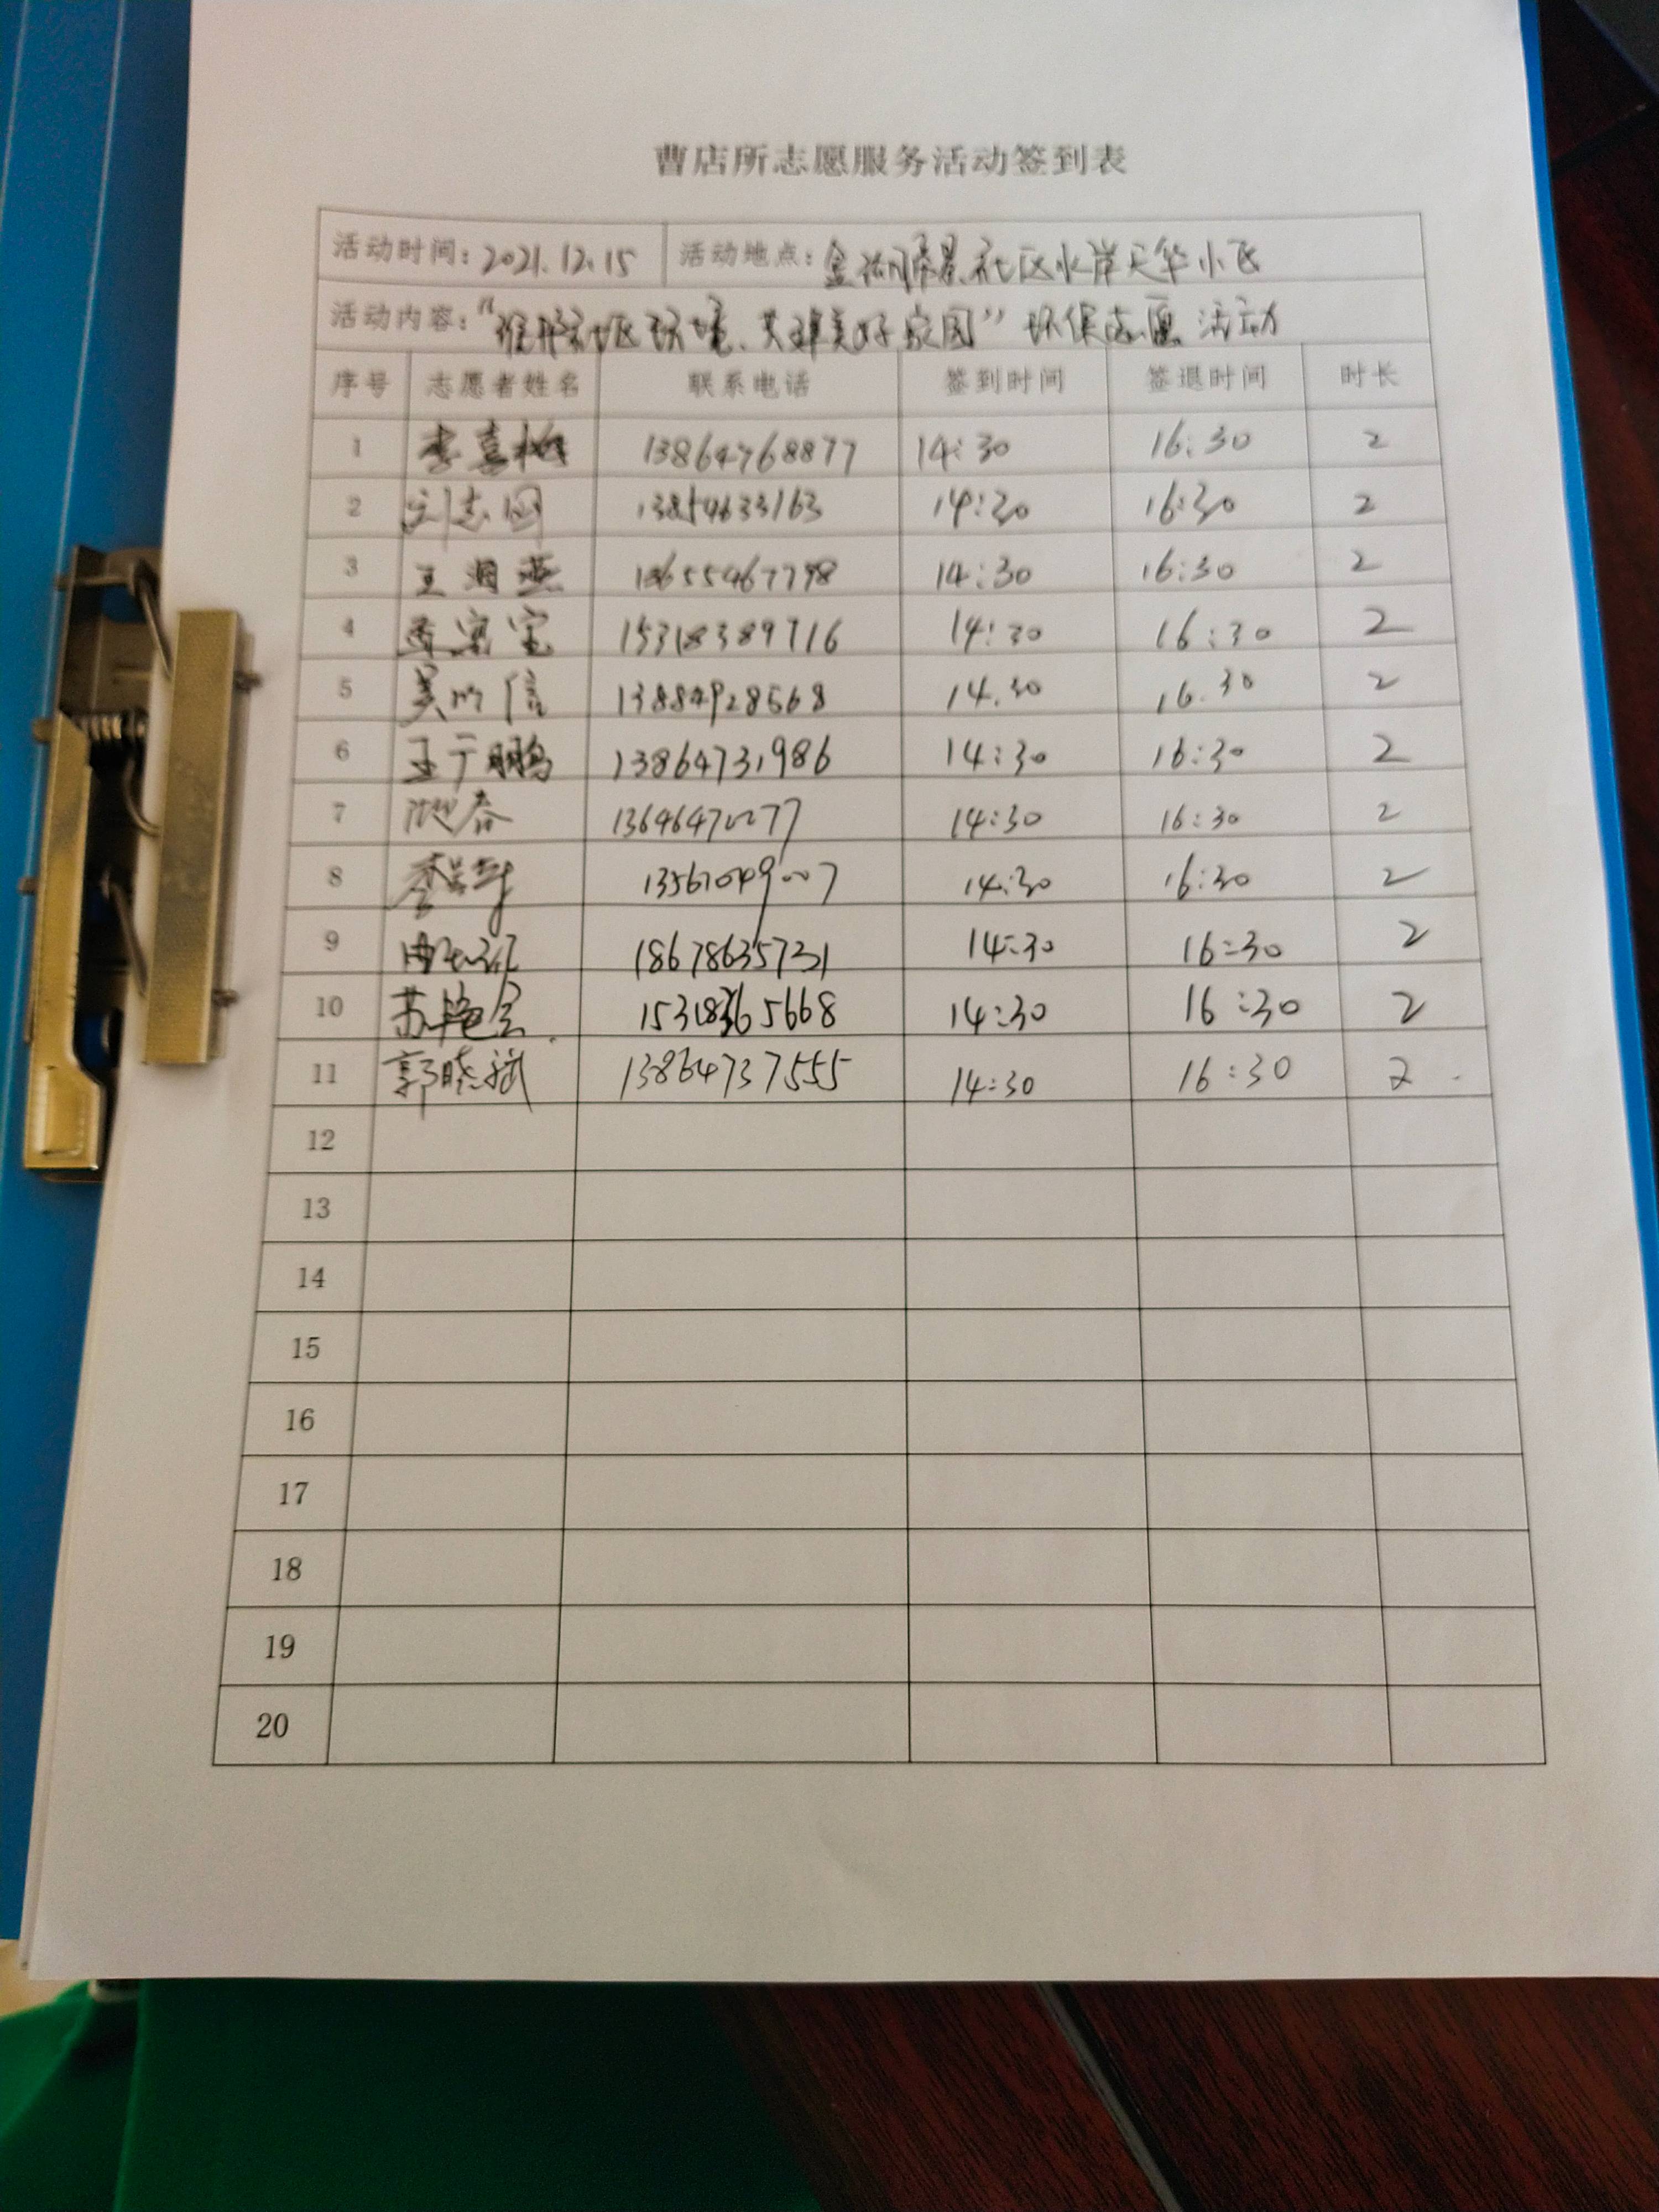 曹店所志愿服务活动签到表
活动时间：2021.12.15 活动地点：金湖帝景社区水岸天华小区
活动内容：“维护社区环境、共建美好家园”环保志愿活动
序号 志愿者姓名 联系电话 签到时间 签退时间 时长
1 13864768877 14:30 16:30 2
2 刘志国 13854633163 14:30 16:30 2
3 14:30 16:30 2
4 15318389716 14:30 16:30 2
5 13884928568 14.30 16.30 2
6 王于鹏 13864731986 14:30 16:30 2
7 14:30 16:30 2
8 14:30 16:30 2
9 18678635731 14:30 16:30 2
10 苏艳会 15318365668 14:30 16:30 2
11 郭晓斌 13864737555 14:30 16:30 2
12
13
14
15
16
17
18
19
20